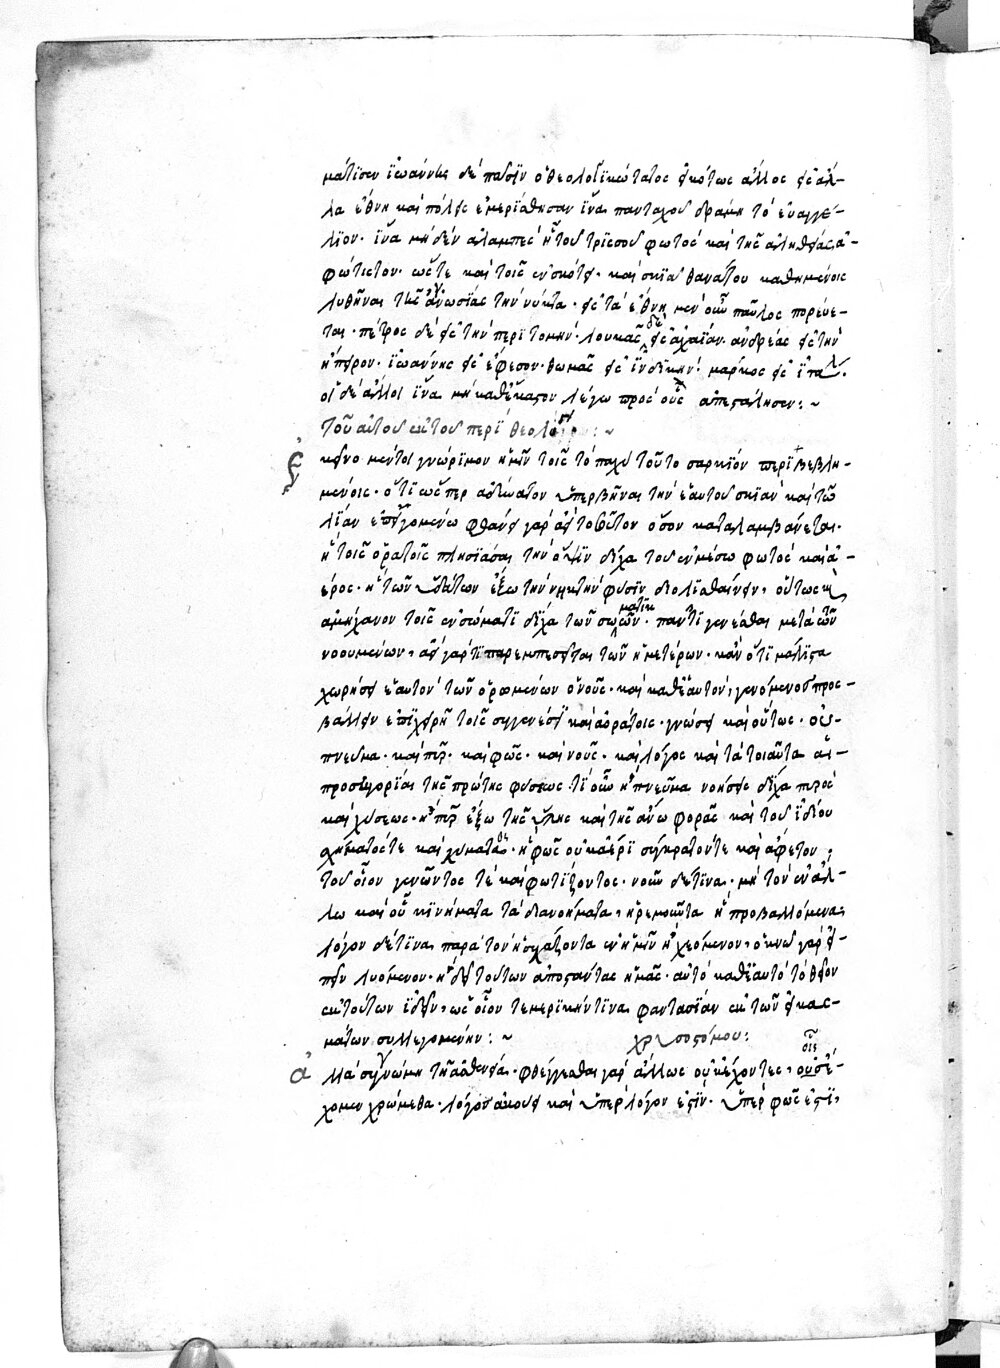 μάτϊσεν ἰωάννης δὲ πᾶσϊν ὁ θεολογϊκώτατος εἰκότως ἄλλος εἰς ἀλ-
λα ἔθνη καὶ πόλεις ἐμερίσθησαν ἵνα πανταχοῦ δράμη τὸ εὐαγγέ-
λϊον· ἵνα μηδὲν ἀλαμπὲς ἦ τοῦ τρϊσσοῦ φωτὸς καὶ τῆς ἀληθείας ἀ-
φώτιστον· ὥστε καὶ τοῖς ἐν σκότει· καὶ σκϊᾶ θανάτου καθημένοις
λυθῆναι τῆς ἀγνωσίας τὴν νύκτα· εἰς τὰ ἔθνη μὲν οὖν παῦλος πορεύε-
ται· πέτρος δὲ εἰς τὴν περϊτομήν· λουκᾶς δὲ εἰς ἀχαΐαν· ἀνδρέας εἰς τὴν
ἤπειρον· ἰωάννης εἰς ἔφεσον· θωμᾶς εἰς ἰνδϊκήν· μάρκος εἰς ἰταλ·
οἱ δὲ ἄλλοι ἵνα μὴ καθ' ἕκαστον λέγω πρὸς οὓς ἀπεστάλησαν:~
Τοῦ αὐτοῦ ἐκ τοῦ περὶ θεολογί :~
Ἐκεῖνο μέντοι γνώρϊμον ἡμῖν τοῖς τὸ παχὺ τοῦτο σαρκϊον περϊβεβλη-
μένοις· ὅτϊ ὥσπερ ἀδύνατον ὑπερβῆναι τὴν ἑαυτοῦ σκϊὰν καὶ τῶ
λϊὰν ἐπειγομένω φθάνει γὰρ ἀεὶ τοσοῦτον ὅσον καταλαμβάνεται·
ἢ τοῖς ὁρατοῖς πλησϊάσαι τὴν ὄψϊν δίχα τοῦ ἐν μέσω φωτὸς καὶ ἀ-
έρος· ἢ τῶν ὑδάτων ἔξω τὴν νηκτὴν φύσϊν διολϊσθαίνειν, οὕτως
ἀμήχανον τοῖς ἐν σώματϊ δίχα τῶν σωματϊκῶν· πάντϊ γενέσθαι μετὰ τῶν
νοουμένων, ἀεὶ γάρ τϊ παρεμπεσεῖται τῶν ἡμετέρων· κἂν ὅτϊ μάλϊστα
χωρήσει ἑαυτὸν τῶν ὁρωμένων ὁ νοῦς· καὶ καθ' ἑαυτὸν, γενόμενος προς-
βάλλειν ἐπϊχειρῆ τοῖς συγγενέσϊ καὶ ἀοράτοις· γνώσει καὶ οὕτως·
πνεῦμα· καὶ πῦρ· καὶ φῶς· καὶ νοῦς· καὶ λόγος καὶ τὰ τοιαῦτα αἱ-
προσηγορίαι τῆς πρώτης φύσεως· τί οὖν ἢ πνεῦμα νοήσεις δίχα πυρὸς
καὶ χύσεως· ἢ πῦρ ἔξω τῆς ὕλης καὶ τῆς ἄνω φορᾶς καὶ τοῦ ἰδίου
χρήματός τε καὶ χύματος· ἢ φῶς οὐκ ἀέρϊ σύγκρατόν τε καὶ ἄφετον,
τοῦ οἷον γενῶντος τὲ καὶ φωτίζοντος· νοῦν δὲ τϊνα· μὴ τὸν ἐν ἀλ-
λω καὶ οὗ κϊνήματα τὰ διανοήματα, ἠρεμοῦντα ἢ προβαλλόμενα,
λόγον δὲ τϊνα παρὰ τὸν ἡσυχάζοντα ἐν ἡμῖν ἢ χεόμενον, ὀκνῶ γὰρ εἰ-
πεῖν λυόμενον· ἢ δεῖ τούτων ἀποστάντας ἡμᾶς· αὐτὸ καθ' ἑαυτὸ τὸ θεῖον
ἐκ τούτων ἰδεῖν, ὡς οἷον τε μερϊκήν τϊνα φαντασίαν ἐκ τῶν εἰκας-
μάτων συλλεγομένην:~ χρυσοστόμου:
Ἀλλὰ συγνώμη τῆ ἀσθενεία· φθέγγεσθαι γὰρ ἄλλως οὐκ ἔχοντες, οἷς ἔ-
χομεν χρώμεθα· λόγον ἀκούεις καὶ ὑπὲρ λόγον ἐστϊν· ὑπὲρ φῶς ἐστϊ,